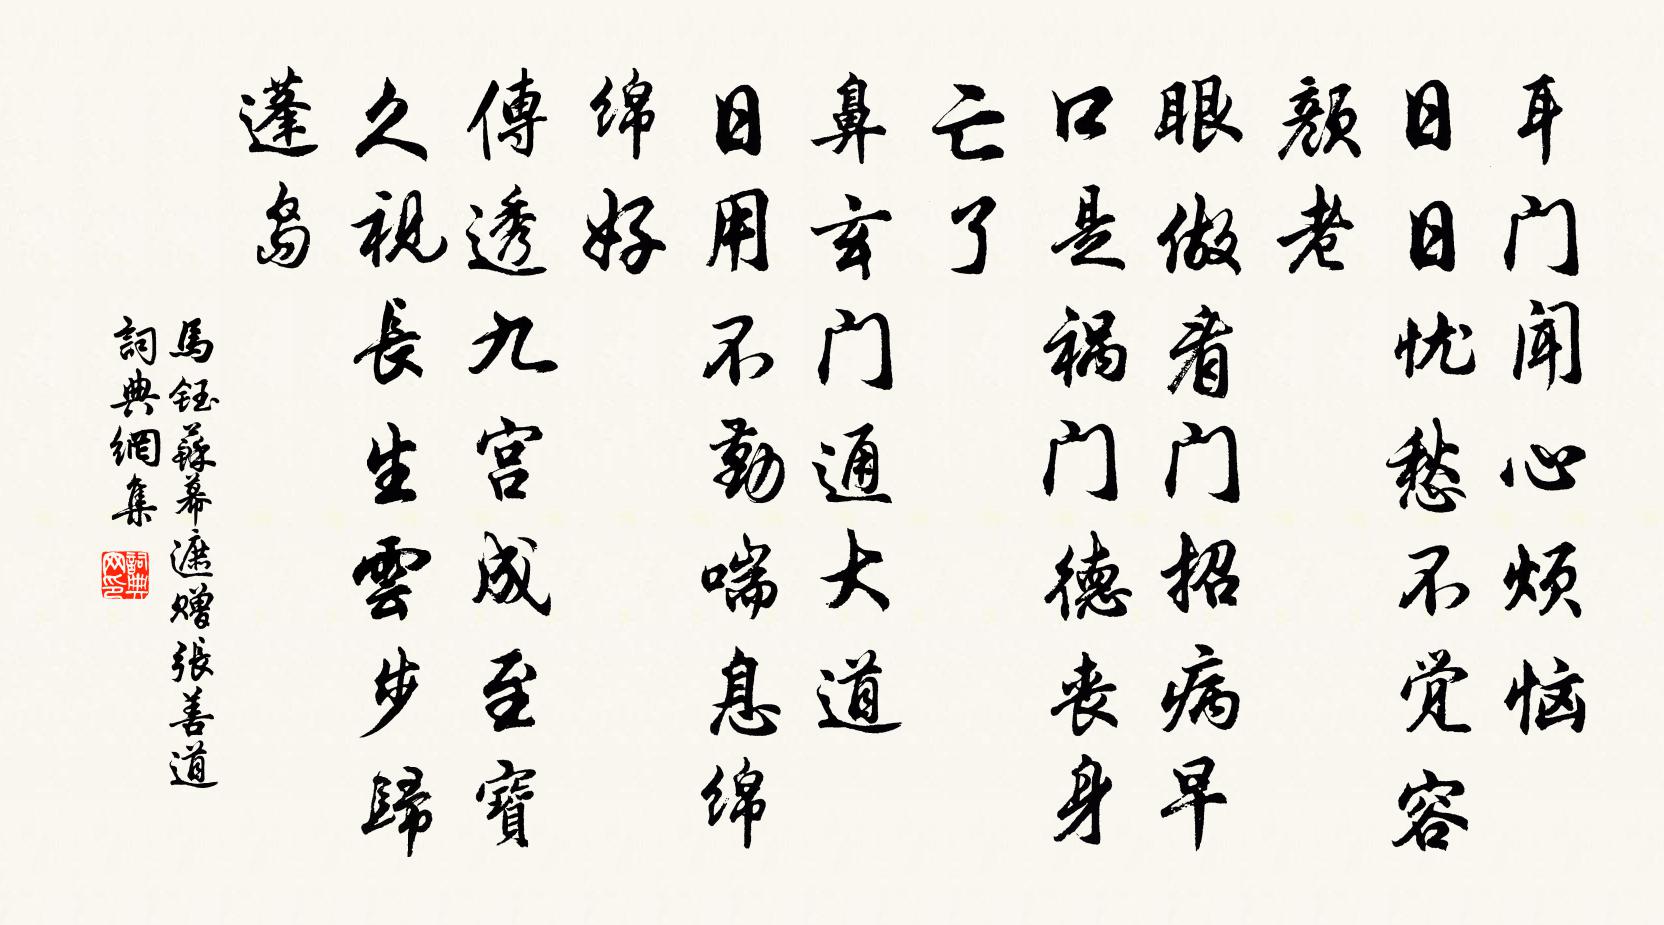 耳门闻心烦恼
日日忧愁不觉容
颜老
眼做看门招病早
口是祸门德丧身
亡了
鼻玄门通大道
日用不勤喘息绵
绵好
傳透九宫成至寶
久视長生雲步歸
蓬岛
馬鈺蘇幕遮赠張善道
詞典網集
詞典网印